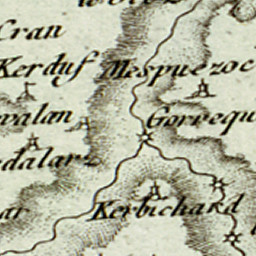 Cran
Kerduf
Mespuezoc
valan
Gorrequ
edalarz
ar
Kerbichard